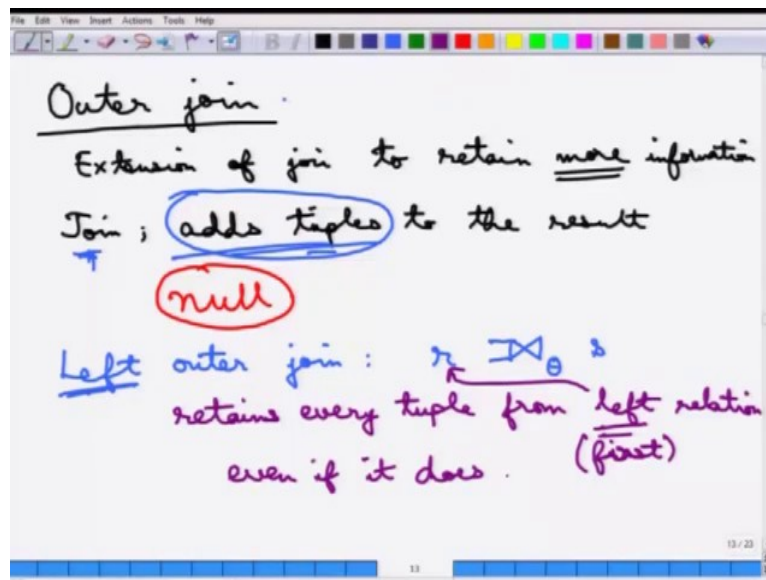 File Edit View Insert Actions Tools Help
B I
Outer join
Extension of join to retain more information
Join ; adds tuples to the result
null
Left outer join : r ⟕θ s
retains every tuple from left relation
(first)
even if it does
13 / 23
13